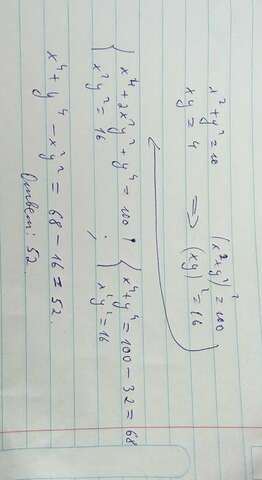 x² + y² = 10
xy = 4 => (x² xy²)² = 100
(xy)² = 16
{ x⁴ + 2x²y² + y⁴ = 100 ; { x⁴ + y⁴ = 100 - 32 = 68
x²y² = 16 ; x²y² = 16
x⁴ + y⁴ - x²y² = 68 - 16 = 52.
Ответ: 52.